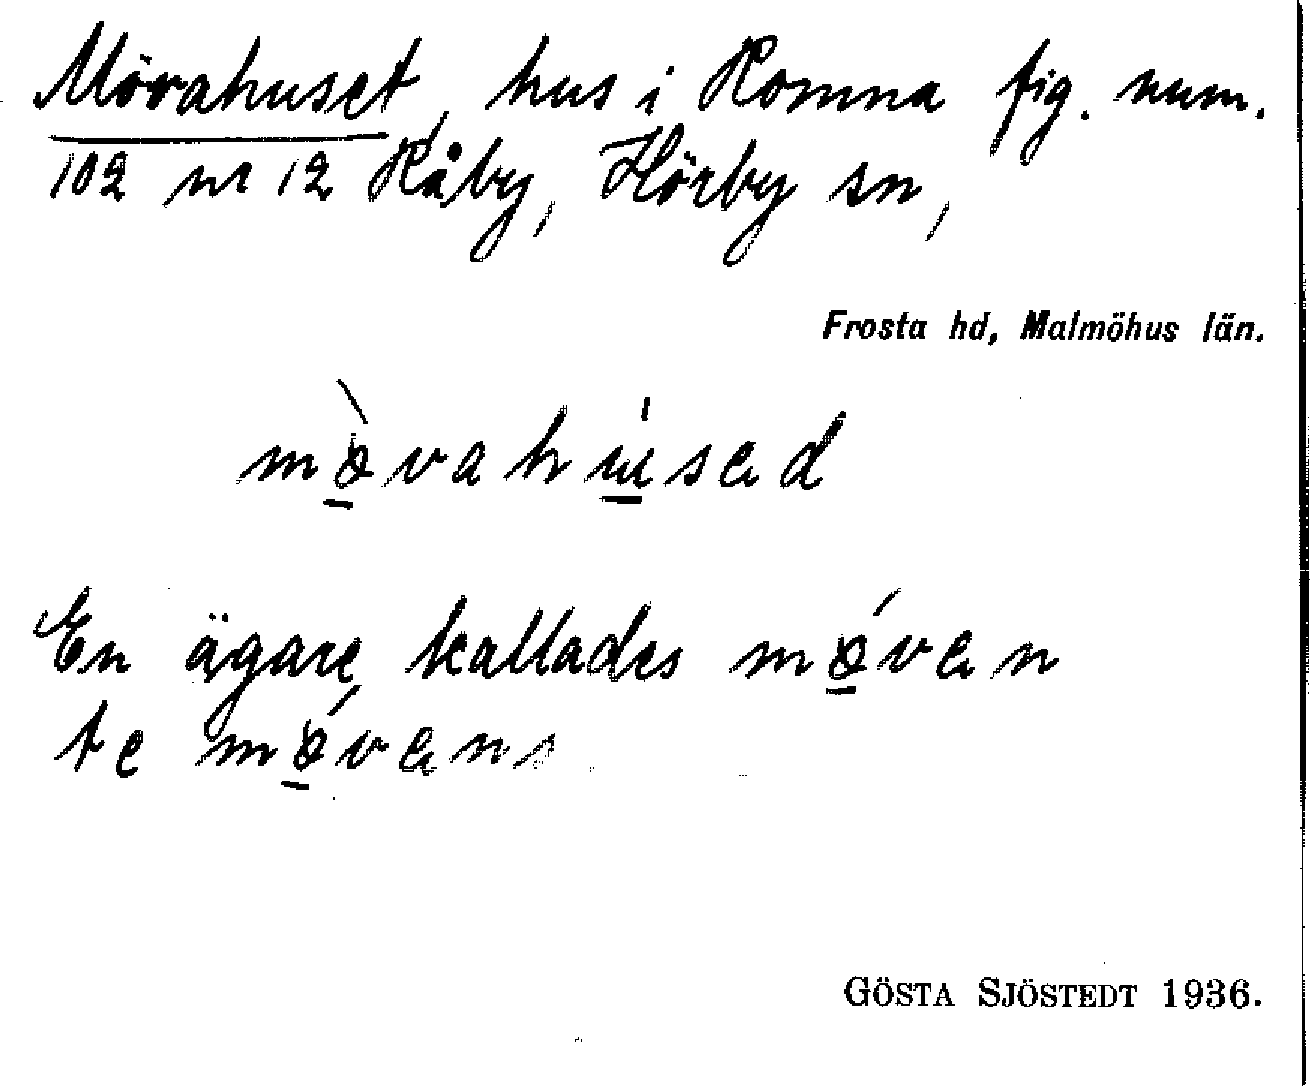 Mövahuset, hus i Romna fig. num.
102 nr 12 Råby, Hörby sn,
Frosta hd, Malmöhus län.
mø̱̀vahu̱̍sed
En ägare kallades mǿ̱ven
te mǿ̱vens
GÖSTA SJÖSTEDT 1936.